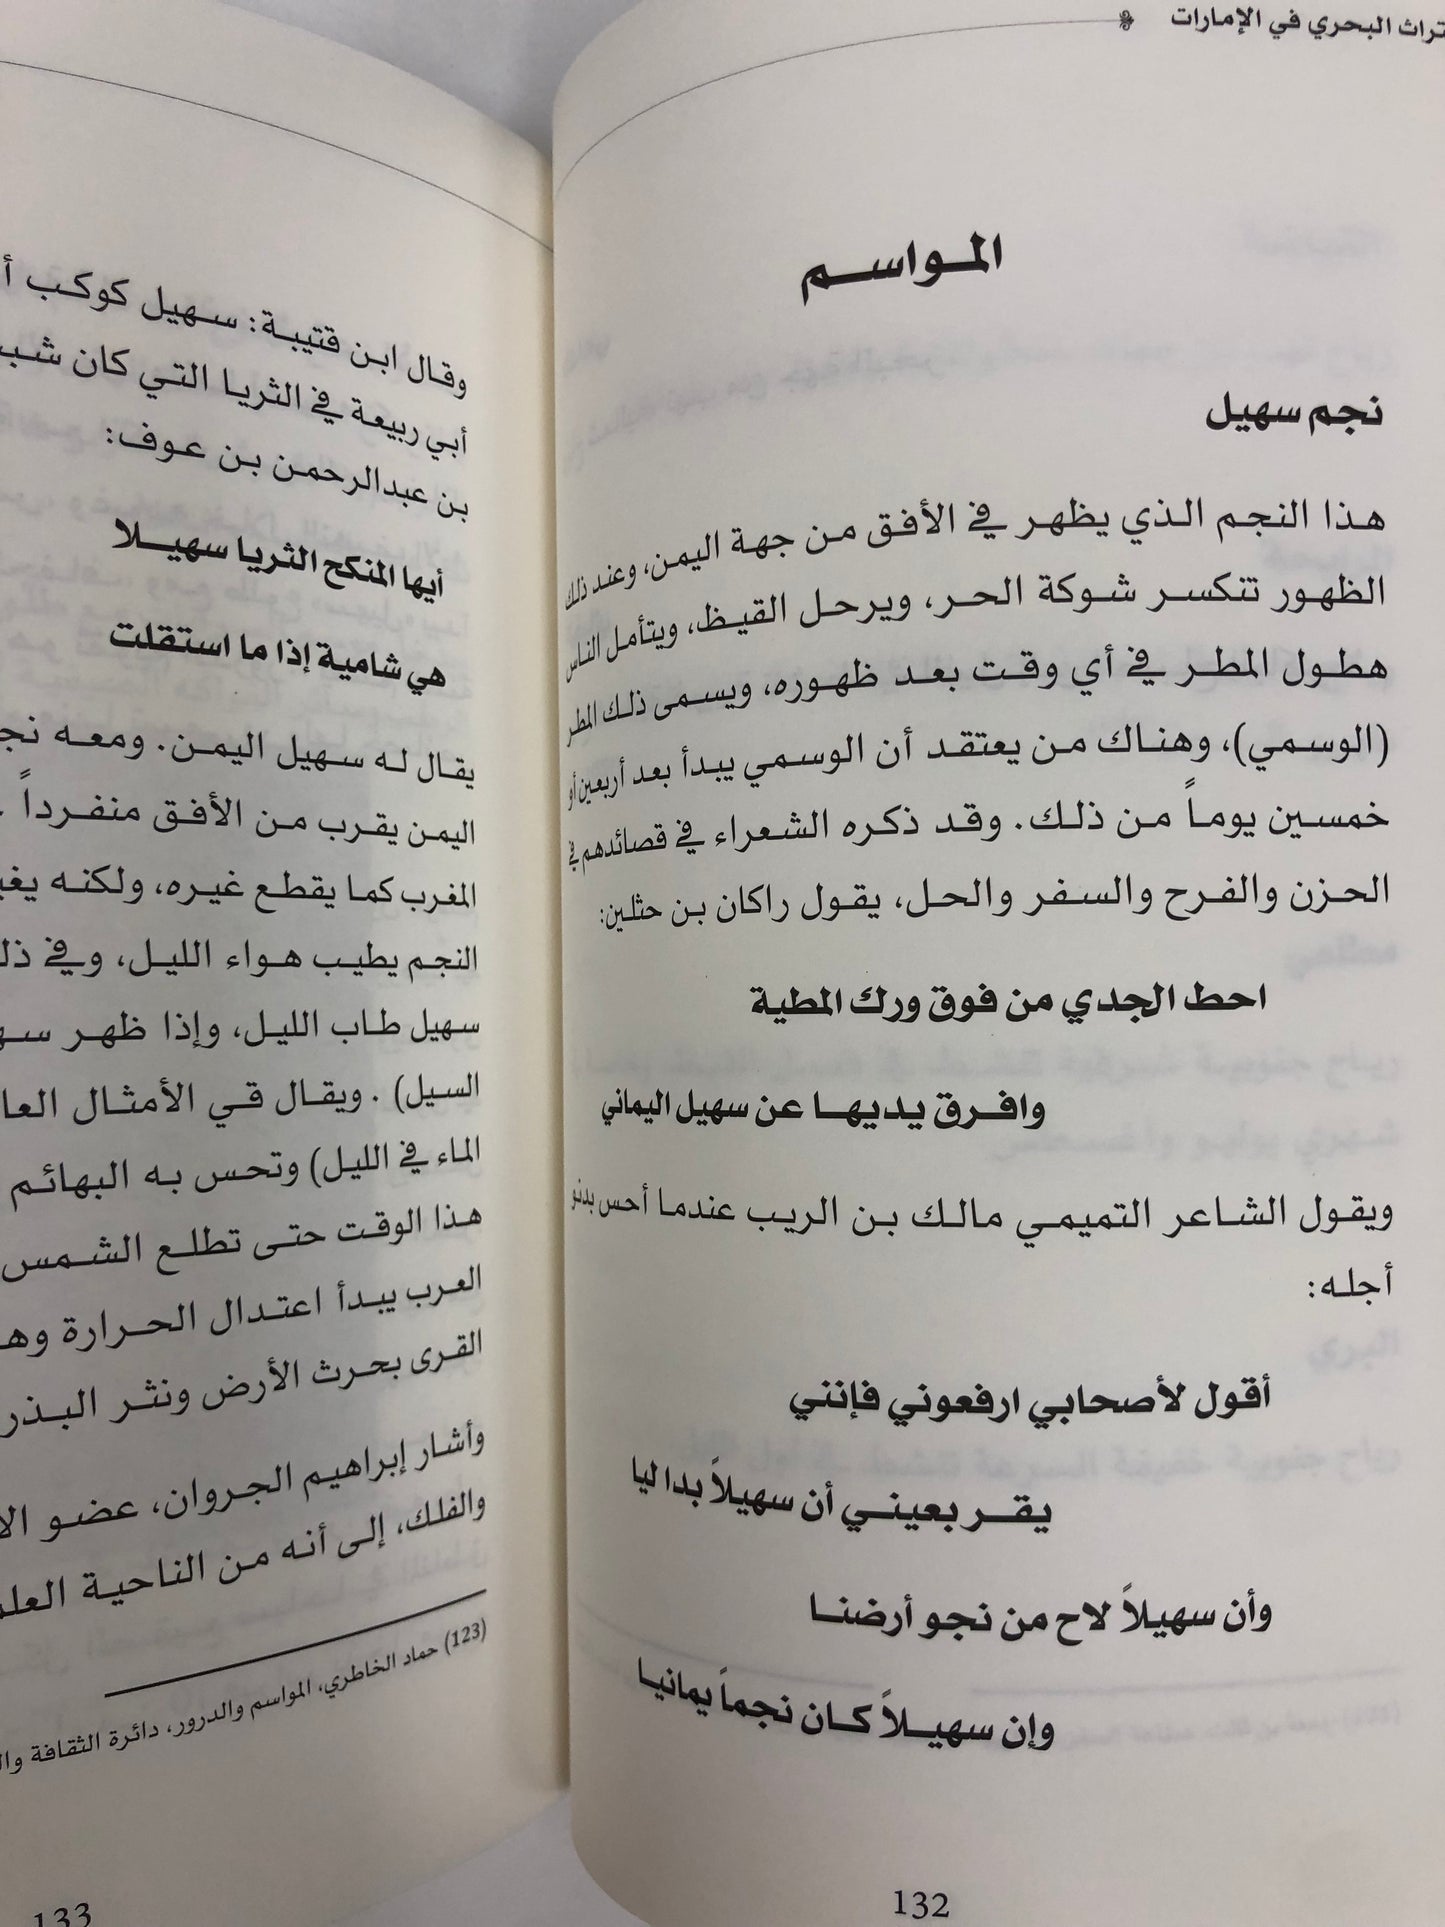 البحري في الإمارات
المواسم
نجم سهيل
هذا النجم الذي يظهر في الأفق من جهة اليمن، وعند ذلك
الظهور تتكسر شوكة الحر، ويرحل القيظ، ويتأمل الناس
هطول المطر في أي وقت بعد ظهوره، ويسمى ذلك المطر
(الوسمي)، وهناك من يعتقد أن الوسمي يبدأ بعد أربعين أو
خمسين يوماً من ذلك. وقد ذكره الشعراء في قصائدهم في
الحزن والفرح والسفر والحل، يقول راكان بن حثلين:
احط الجدي من فوق ورك المطية
وافرق يديها عن سهيل اليماني
ويقول الشاعر التميمي مالك بن الريب عندما أحس بدنو
أجله:
أقول لأصحابي ارفعوني فإنني
يقر بعيني أن سهيلاً بدا ليا
وأن سهيلاً لاح من نجو أرضنا
وإن سهيلاً كان نجماً يمانيا
132
وقال ابن قتيبة: سهيل كوكب
أبي ربيعة في الثريا التي كان
بن عبدالرحمن بن عوف:
أيها المنكح الثريا سهيلا
هي شامية إذا ما استقلت
يقال له سهيل اليمن. ومعه
اليمن يقرب من الأفق منفرداً
المغرب كما يقطع غيره، ولكنه
النجم يطيب هواء الليل، وفي
سهيل طاب الليل، وإذا ظهر
السيل) . ويقال قي الأمثال
الماء في الليل) وتحس به البهائم
هذا الوقت حتى تطلع الشمس
العرب يبدأ اعتدال الحرارة
القرى بحرث الأرض ونثر البذر
وأشار إبراهيم الجروان، عضو
والفلك، إلى أنه من الناحية
(123) حماد الخاطري، المواسم والدرور، دائرة الثقافة
133